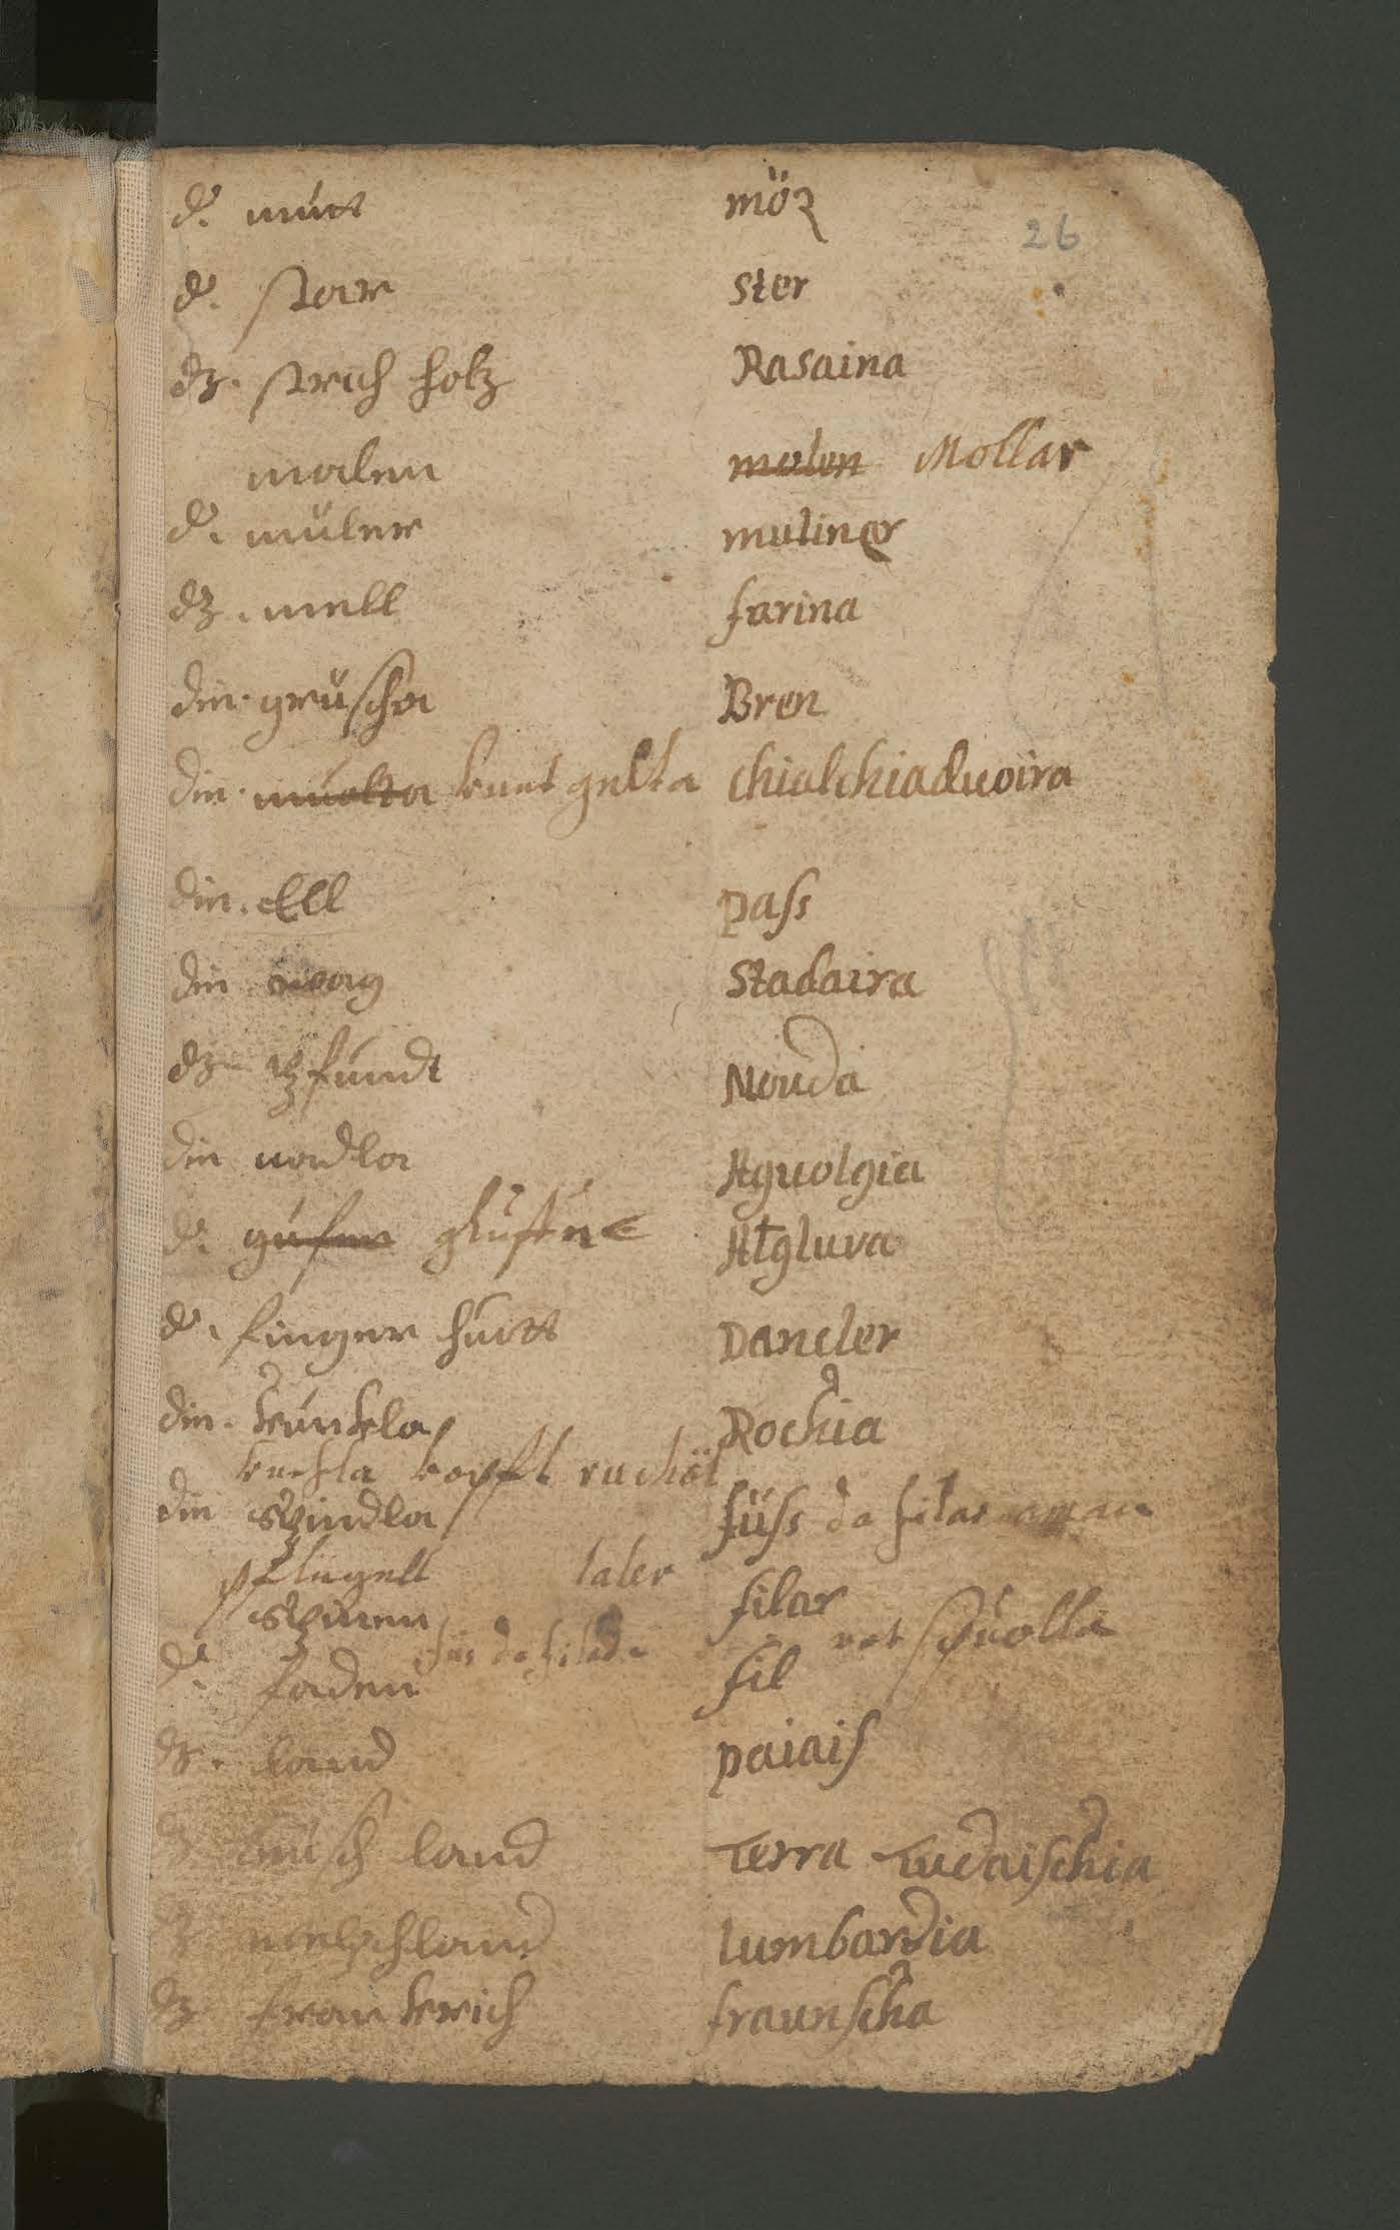 d. mütt möz
26
d. star ster
dz. strich holtz Rasaina
malen molen Mollar
d. müler muliner
dz. mell farina
die. grüscha Bren
die. muolta knet gelta chialchiaduoira
die. Elll pass
die wag Stadaira
dz pfundt Nouda
die nadla Aguolgia
d. gufen glufen Atgluva
d. finger huott Dancler
die. kunkla Rochia
kuchla kopft ruchöl
die spindla füss da filar
pflügell laler
spinen filar
füs da filada spuolla
d. faden fil
dz. land paiais
dz tütsch land Terra Tudaischia
dz welschland lumbardia
dz frankrich fraunscha